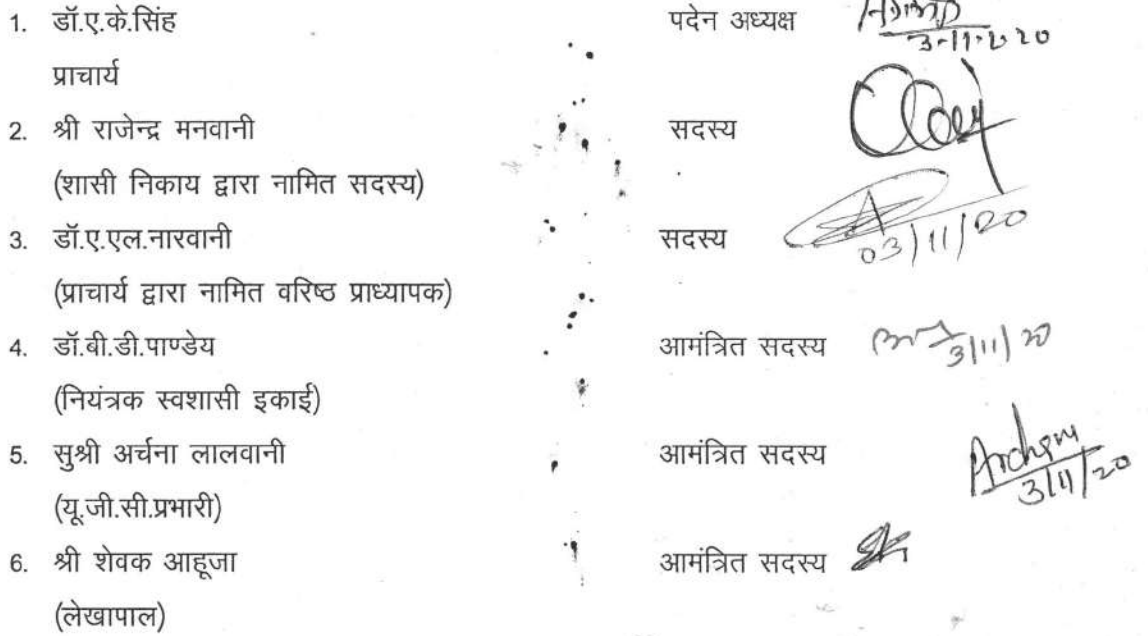 1. डॉ.ए.के.सिंह पदेन अध्यक्ष 3-11-2020
प्राचार्य
2. श्री राजेन्द्र मनवानी सदस्य
(शासी निकाय द्वारा नामित सदस्य)
3. डॉ.ए.एल.नारवानी सदस्य 03/11/20
(प्राचार्य द्वारा नामित वरिष्ठ प्राध्यापक)
4. डॉ.बी.डी.पाण्डेय आमंत्रित सदस्य 3/11/20
(नियंत्रक स्वशासी इकाई)
5. सुश्री अर्चना लालवानी आमंत्रित सदस्य 3/11/20
(यू.जी.सी.प्रभारी)
6. श्री शेवक आहूजा आमंत्रित सदस्य
(लेखापाल)